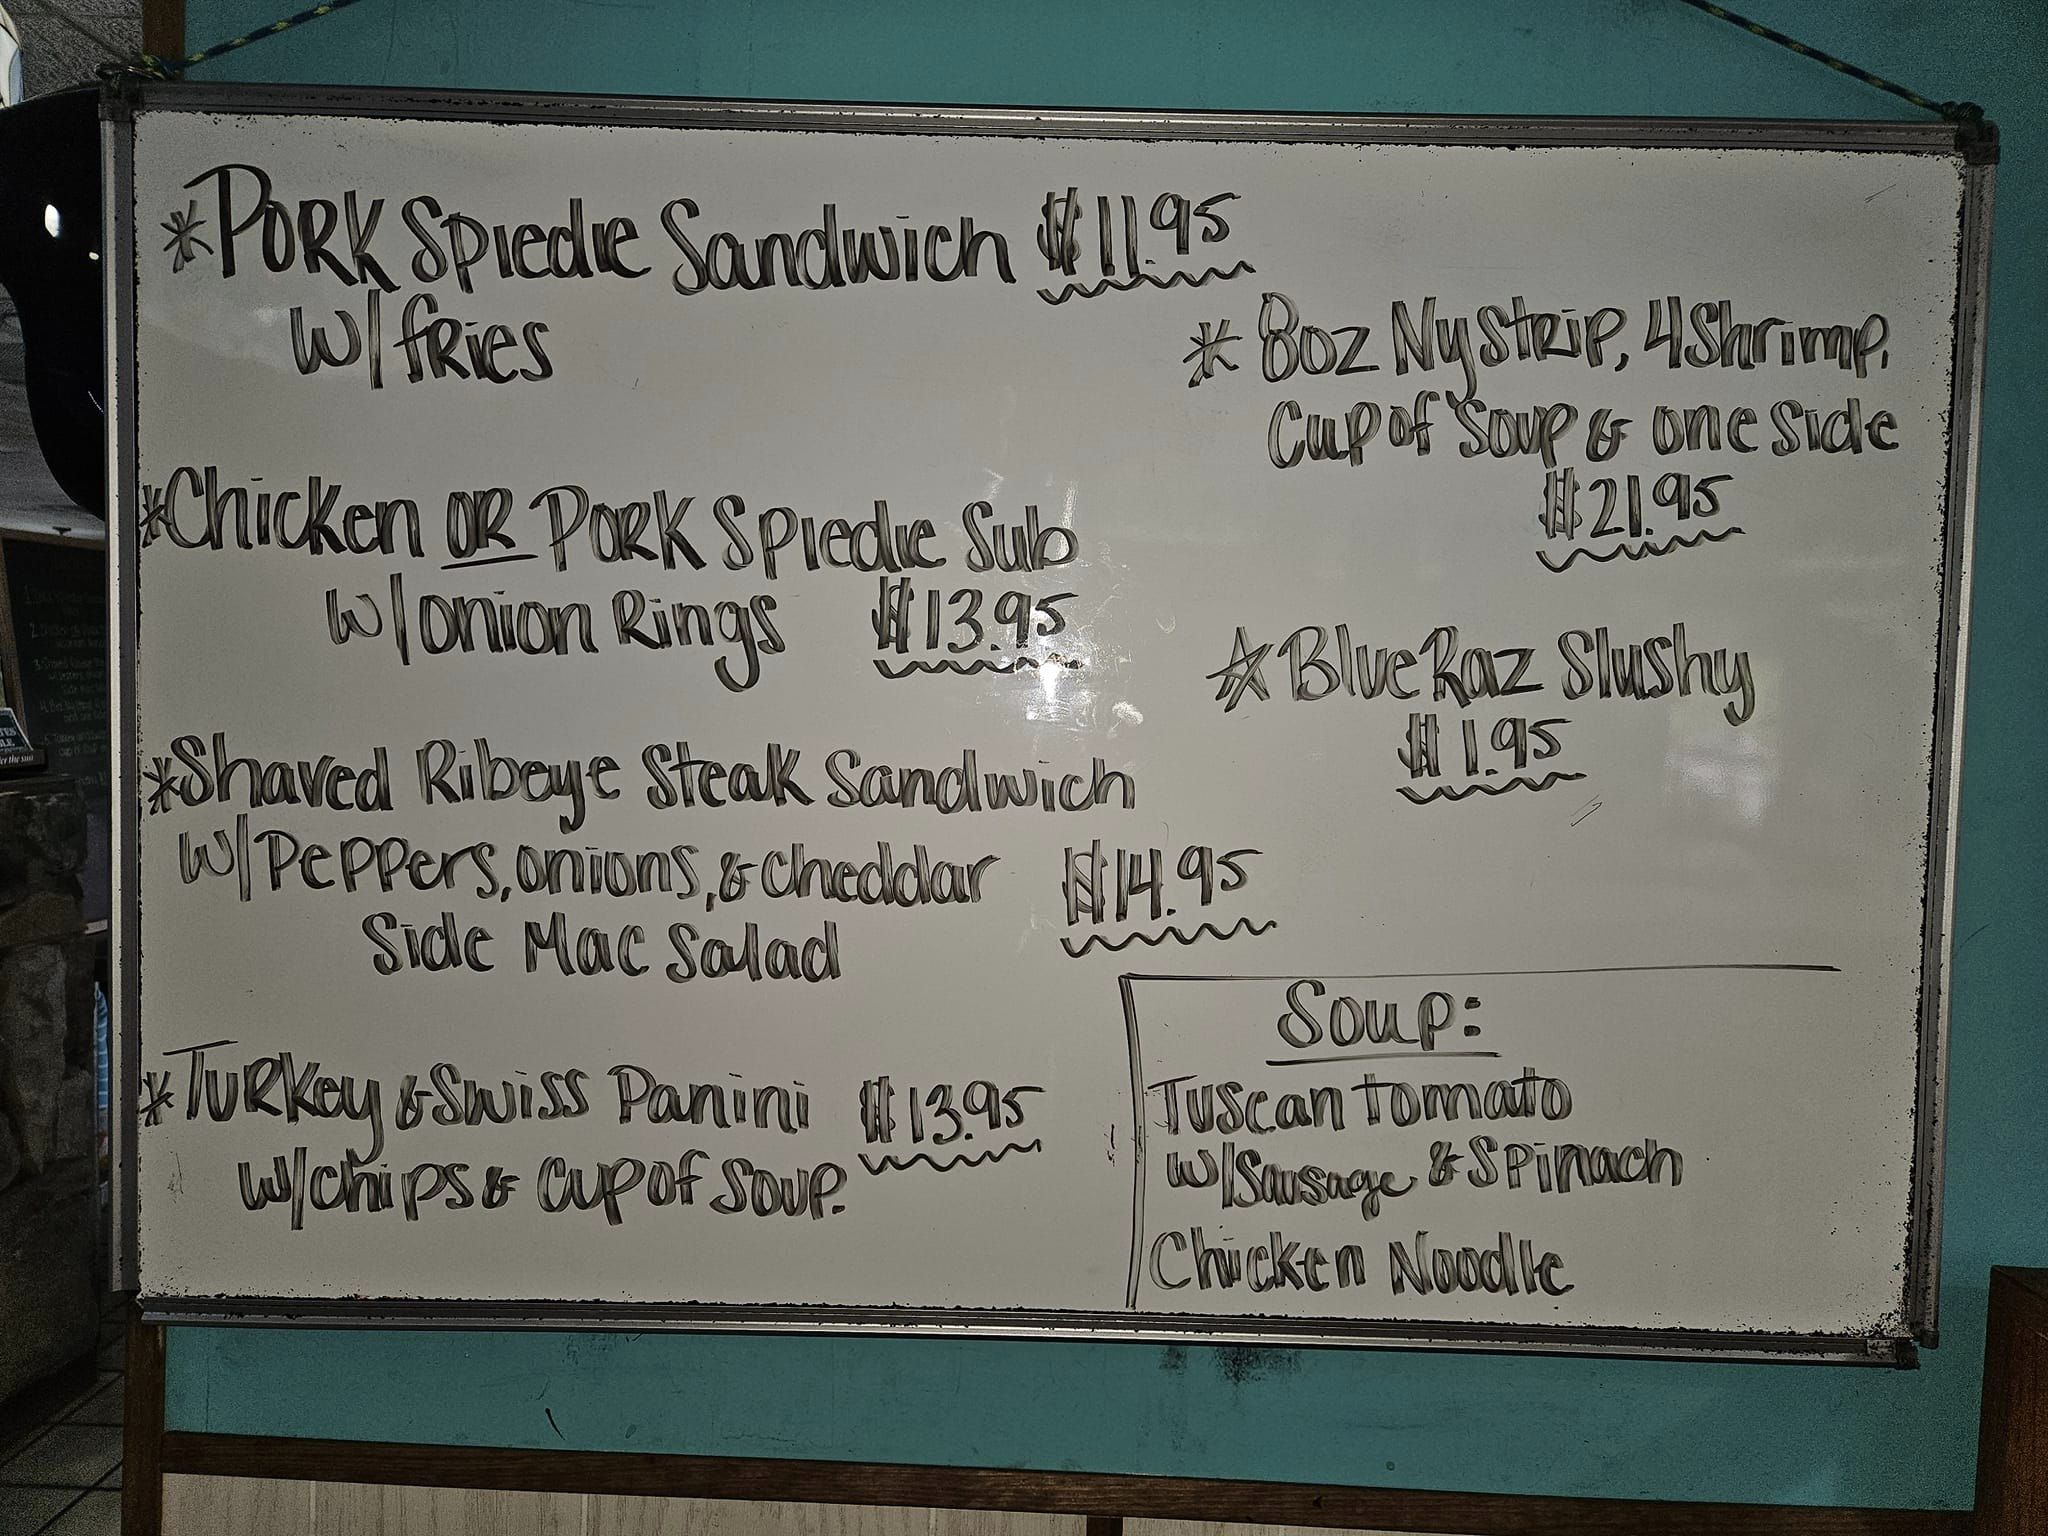 *Pork Spiedie Sandwich $11.95
w/fries
*Chicken OR Pork Spiedie Sub
w/onion Rings $13.95
*Shaved Ribeye Steak Sandwich
w/Peppers, onions, & cheddar $14.95
Side Mac Salad
*Turkey & Swiss Panini $13.95
w/chips & Cup of Soup.
* 8oz Ny Strip, 4 Shrimp,
Cup of Soup & one side
$21.95
☆Blue Raz Slushy
$1.95
Soup:
Tuscan tomato
w/Sausage & Spinach
Chicken Noodle